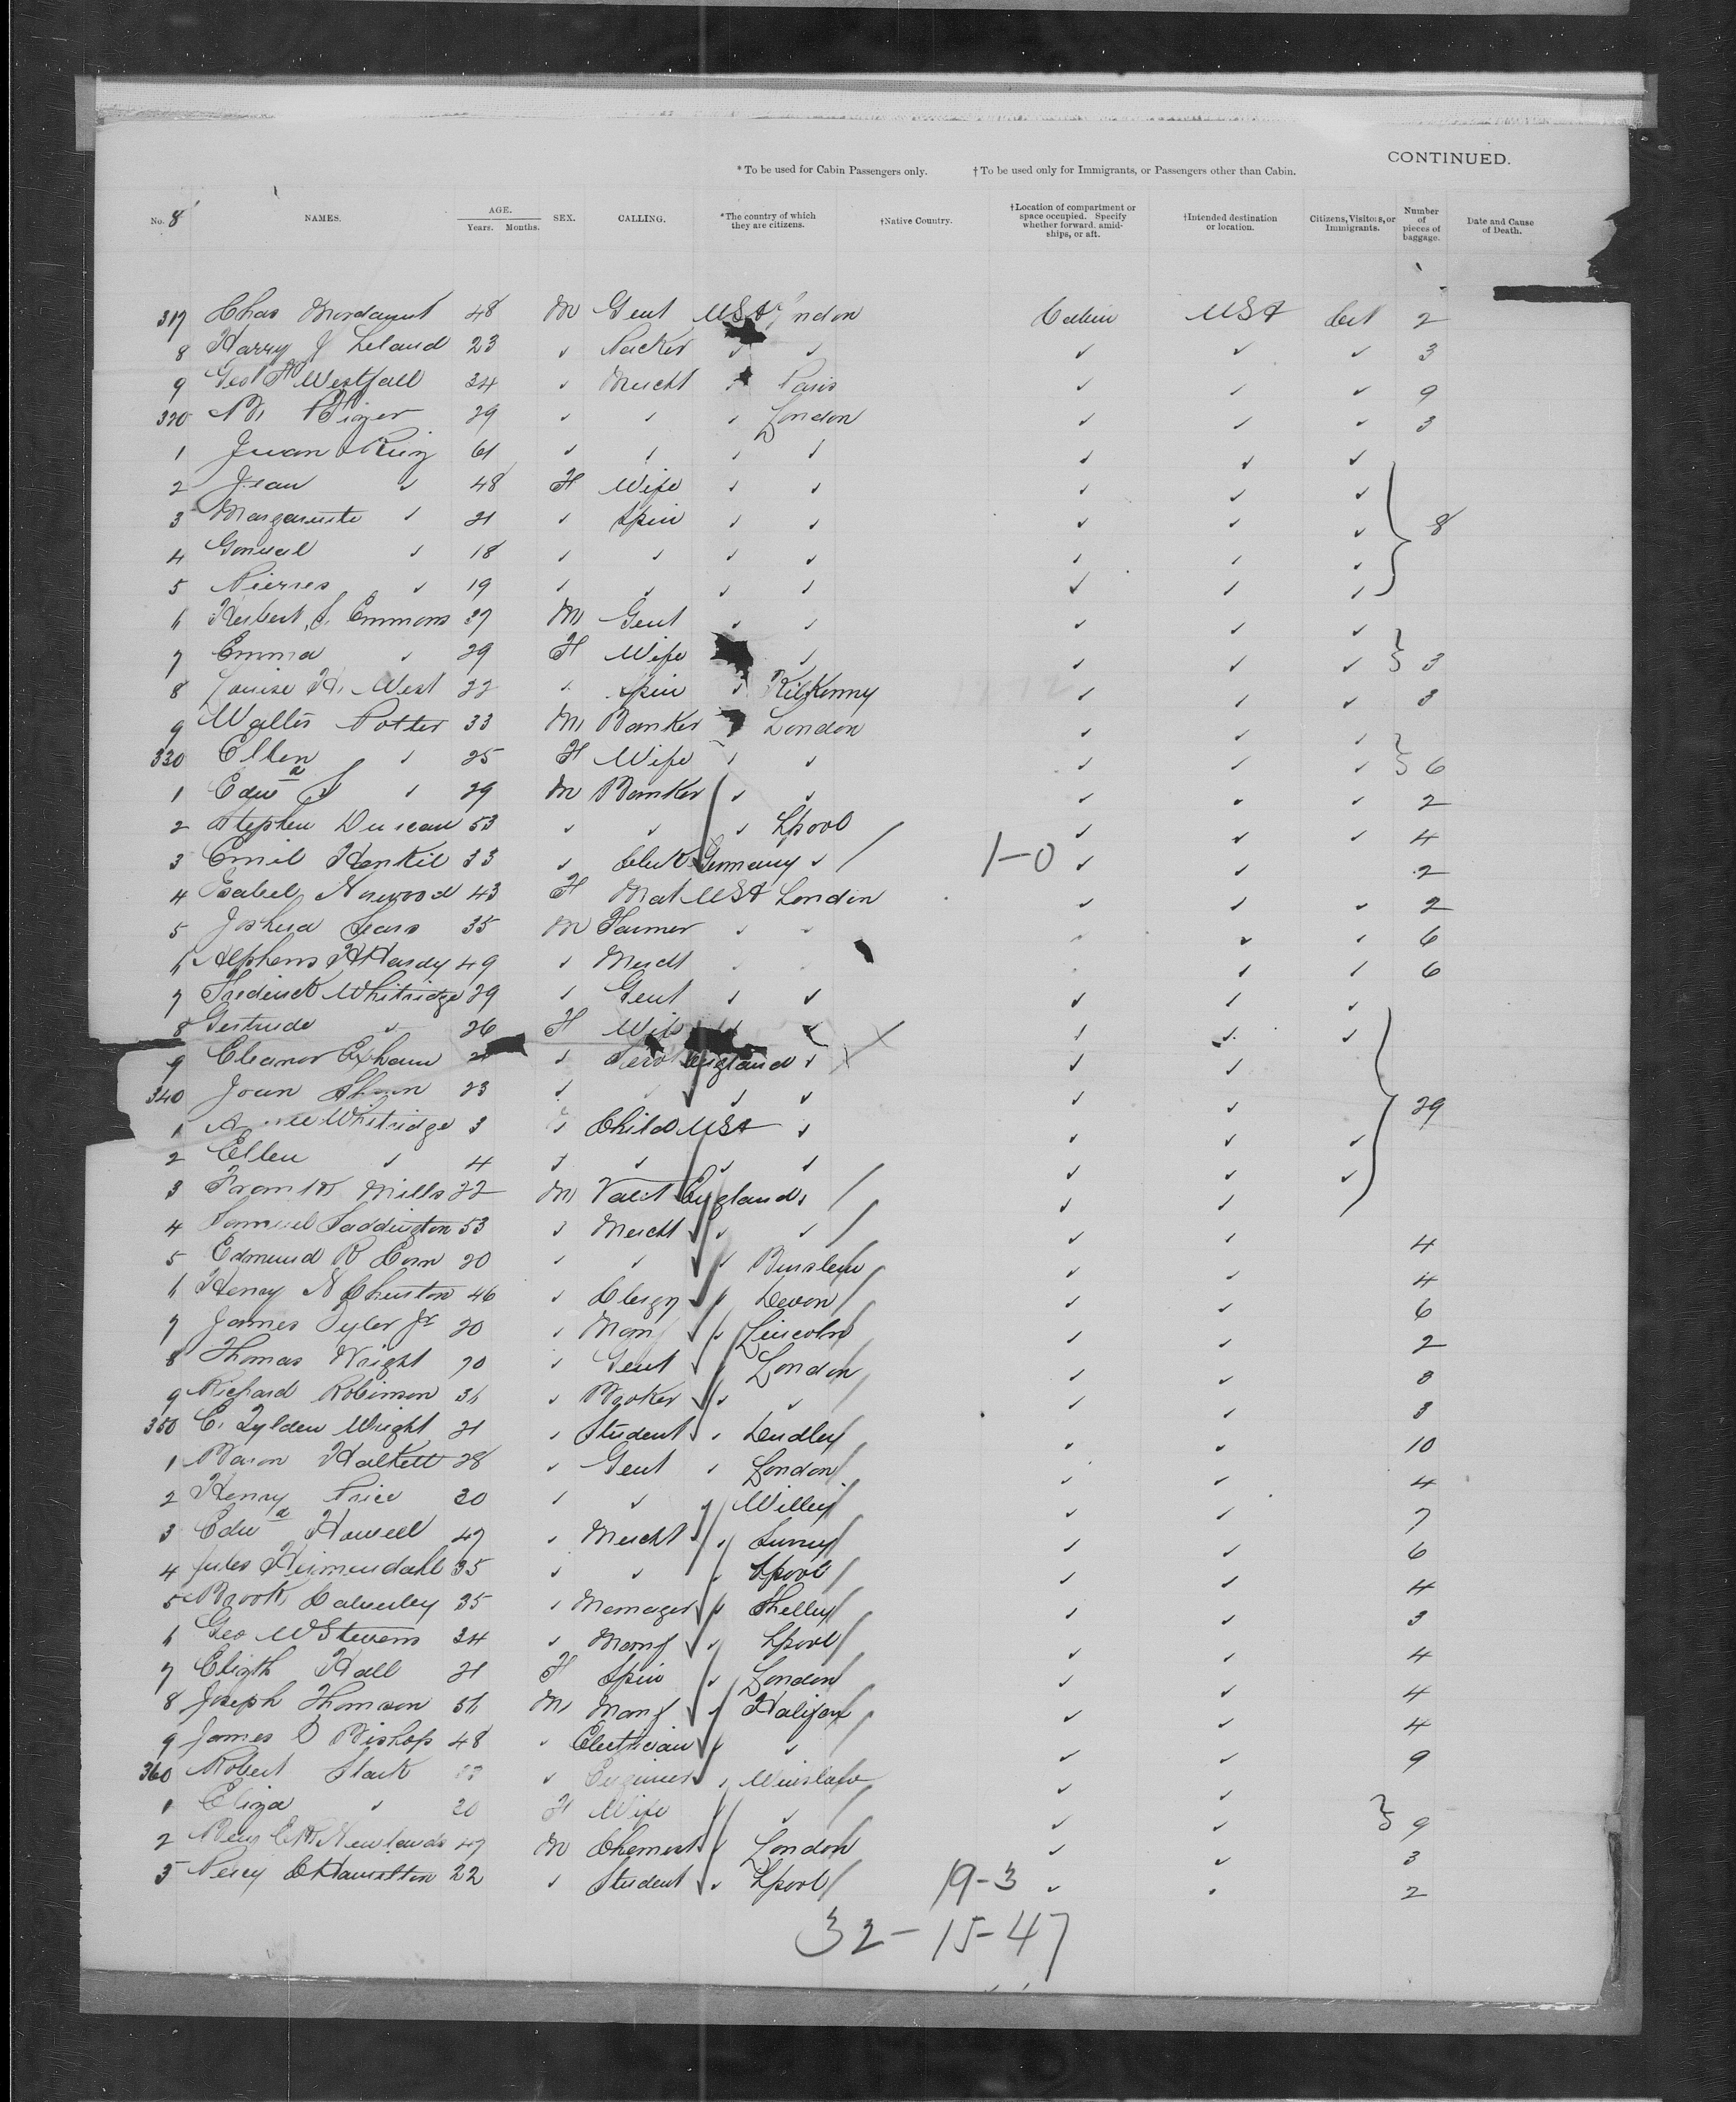 CONTINUED.
*To be used for Cabin Passengers only. †To be used only for Immigrants, or Passengers other than Cabin.
No. 8 NAMES. AGE. Years. Months. SEX. CALLING. *The country of which they are citizens. †Native Country. †Location of compartment or space occupied. Specify whether forward, amidships, or aft. †Intended destination or location. Citizens, Visitors, or Immigrants. Number of pieces of baggage. Date and Cause of Death.
317 Chas Mordaunt 48 M Gent USA London Cabin USA Cit 2
8 Harry J Leland 23 ✓ Packer ✓ ✓ ✓ ✓ ✓ 3
9 Geo H Westfall 34 ✓ Mercht ✓ Paris ✓ ✓ ✓ 9
320 29 ✓ ✓ ✓ London ✓ ✓ ✓ 3
1 Juan Ruiz 61 ✓ ✓ ✓ ✓ ✓ ✓ ✓
2 Jean ✓ 48 F Wife ✓ ✓ ✓ ✓ ✓
3 Marguerite ✓ 21 ✓ Spin ✓ ✓ ✓ ✓ ✓ 8
4 ✓ 18 ✓ ✓ ✓ ✓ ✓ ✓ ✓
5 ✓ 19 ✓ ✓ ✓ ✓ ✓ ✓ ✓
6 Herbert S. Emmons 37 M Gent ✓ ✓ ✓ ✓ ✓
7 Emma ✓ 29 F Wife ✓ ✓ ✓ ✓ 3
8 Louise H. West 22 ✓ Spin ✓ Kilkenny ✓ ✓ ✓ 3
9 Walter Potter 33 M Banker London ✓ ✓ ✓
330 Ellen ✓ 25 F Wife ✓ ✓ ✓ ✓ ✓ 6
1 Edwd S ✓ 29 M Banker ✓ ✓ ✓ ✓ ✓ 2
2 Stephen Duncan 53 ✓ ✓ ✓ Lpool ✓ ✓ ✓ 4
3 Emil Henkil 33 ✓ Clerk Germany ✓ / 1-0 ✓ ✓ 2
4 Isabel Norwood 43 F Mat USA London ✓ ✓ ✓ 2
5 Joshua Sears 35 M Farmer ✓ ✓ ✓ ✓ ✓ 6
6 Alpheus H Hardy 49 ✓ Mercht ✓ ✓ 6
7 Frederick Whitridge 29 ✓ Gent ✓ ✓ ✓ ✓ ✓
8 Gertrude ✓ 26 F Wife ✓ ✓ ✓ ✓
9 Eleanor Exham ✓ Serv England ✓ X ✓ ✓
340 Joan 23 ✓ ✓ ✓ ✓ ✓ 29
1 Whitridge 3 ✓ Child USA ✓ ✓ ✓ ✓
2 Ellen ✓ 4 ✓ ✓ ✓ ✓ ✓ ✓ ✓
3 Frank Mills 22 M Valet England ✓ / ✓ ✓
4 Samuel Saddington 53 ✓ Mercht ✓ ✓ / ✓ ✓ 4
5 Edmund R Corn 20 ✓ ✓ ✓ Burslem ✓ ✓ 4
6 Henry N Churton 46 ✓ Clergy ✓ Devon / ✓ ✓ 6
7 James Tyler Jr 20 ✓ Manf ✓ Lincoln / ✓ ✓ 2
8 Thomas Wright 70 ✓ Gent ✓ London / ✓ ✓ 3
9 Richard Robinson 36 ✓ ✓ ✓ / ✓ ✓ 3
350 C. Tylden Wright 21 ✓ Student ✓ Dudley / ✓ ✓ 10
1 Baron Halkett 28 ✓ Gent ✓ London / ✓ ✓ 4
2 Henry Price 30 ✓ ✓ ✓ Willey / ✓ ✓ 7
3 Edwd Howell 47 ✓ Mercht ✓ Surrey / ✓ ✓ 6
4 Jules Heimendahl 35 ✓ ✓ ✓ Lpool / ✓ ✓ 4
5 Brook Calverley 35 ✓ Manager ✓ Shelley / ✓ ✓ 3
6 Geo W Stevens 34 ✓ Manf ✓ Lpool / ✓ ✓ 4
7 Elizth Hall 21 F Spin ✓ London / ✓ ✓ 4
8 Joseph Thomson 56 M Manf ✓ Halifax / ✓ ✓ 4
9 James D Bishop 48 ✓ Electrician ✓ ✓ / ✓ ✓ 9
360 Robert Stark ✓ Engineer ✓ Winslow ✓ ✓
1 Eliza ✓ 20 F Wife ✓ ✓ / ✓ ✓ 9
2 Newlands 47 M Chemist ✓ London / ✓ ✓ 3
3 Percy C Hamilton 22 ✓ Student ✓ Lpool / 19-3 ✓ ✓ 2
32-15-47